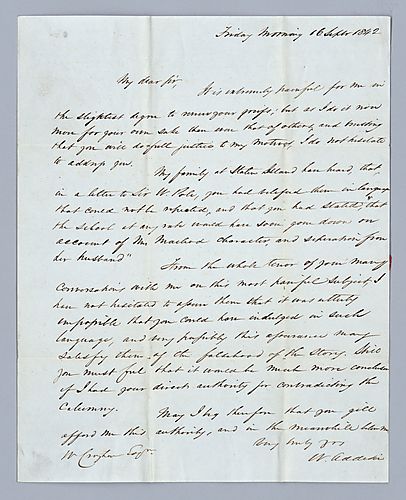 Friday Morning 16 Septr 1842
My dear Sir,
It is extremely painful for me in
the slightest degree to renew your griefs; but as I do it now
more for your own sake than even that of others, and trusting
that you will do full justice to my motives, I do not hesitate
to address you.
My family at Staten Island have heard, that
in a letter to Sir W. Pole, you had vilified them in language
that could not be repeated, and that you had stated, "that
the school at any rate would have soon gone down on
account of Mrs Macleod character and separation from
her husband"
From the whole tenor of your many
Conversations with me on this most painful subject I
have not hesitated to assure them that it was utterly
impossible that you could have indulged in such
language, and very possibly this assurance may
satisfy them of the falsehood of the Story. Still
you must feel that it would be much more conclusive
if I had your direct authority for contradicting the
Calumny.
May I beg therefore that you will
afford me this authority, and in the meanwhile believe me
Very truly yrs
W. Croghan Esqr W. Addison